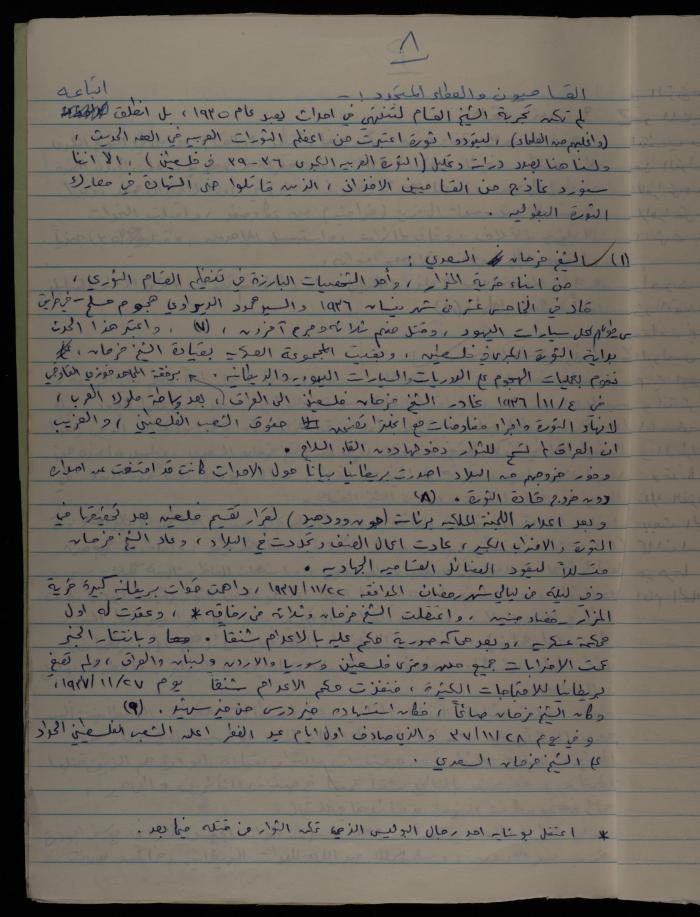 ٨
القساميون والعطاء المتجدد :-
لم تكن تجربة الشيخ القسام لتنتهي في احداث بعيد عام ١٩٣٥، بل انطلق اتباعه
(واغلبهم من العلماء)، ليقودوا ثورة اعتبرت من اعظم الثورات العربية في العهد الحديث،
ولسنا هنا بصدد دراسة وتحليل (الثورة العربية الكبرى ٣٦-٣٩ في فلسطين)، الا اننا
سنورد نماذج من القساميين الافذاذ، الذين قاتلوا حتى الشهادة في معارك
الثورة البطولية.
(١) الشيخ فرحان السعدي :
من ابناء قرية المزار، وأحد الشخصيات البارزة في تنظيم القسام الثوري،
قاد في الخامس عشر من شهر نيسان ١٩٣٦ والسيد محمود الديراوي هجوم مسلح
سيارات اليهود، وقتل منهم ثلاثة وجرح آخرون، (٧). واعتبر هذا الحدث
بداية الثورة الكبرى في فلسطين، وبقيت المجموعة العسكرية بقيادة الشيخ فرحان،
تقوم بعمليات الهجوم على الدوريات والسيارات اليهودية والبريطانية. برفقة المجاهد فوزي القاوقجي
في ٤/١١/١٩٣٦ غادر الشيخ فرحان فلسطين الى العراق، بعد وساطة ملوك العرب،
لانهاء الثورة واجراء مفاوضات مع انجلترا تضمن حقوق الشعب الفلسطيني، والغريب
ان العراق لم تسمح للثوار دخولها دون القاء السلاح.
وفور خروجهم من البلاد اصدرت بريطانيا بيانا حول الاحداث كانت قد امتنعت عن اصداره
دون خروج قادة الثورة. (٨)
وبعد اعلان اللجنة الملكية برئاسة (جون وودهيد) لقرار تقسيم فلسطين بعد تحقيقها في
الثورة والاضراب الكبير، عادت اعمال العنف وتجددت في البلاد، وعاد الشيخ فرحان
متسللاً ليقود الفصائل القسامية الجهادية.
وفي ليلة من ليالي شهر رمضان الموافقة ٢٢/١١/١٩٣٧، داهمت قوات بريطانية كبيرة قرية
المزار قضاء جنين، واعتقلت الشيخ فرحان وثلاثة من رفاقه *، وعقدت له اول
محكمة عسكرية، وبعد محاكمة صورية حكم عليه بالاعدام شنقاً. وبانتشار الخبر
عمت الاضرابات جميع مدن وقرى فلسطين وسوريا والاردن ولبنان والعراق، ولم تصغ
بريطانيا للاحتجاجات الكثيرة، فنفذت حكم الاعدام شنقاً يوم ٢٧/١١/١٩٣٧،
وكان الشيخ فرحان صائماً، فكان استشهاده خير درس من خير شهيد. (٩)
وفي يوم ٢٨/١١/٣٧ والذي صادف اول ايام عيد الفطر اعلن الشعب الفلسطيني الحداد
على الشيخ فرحان السعدي.
* اعتقل بوشاية احد رجال البوليس الذي تمكن الثوار من قتله فيما بعد.